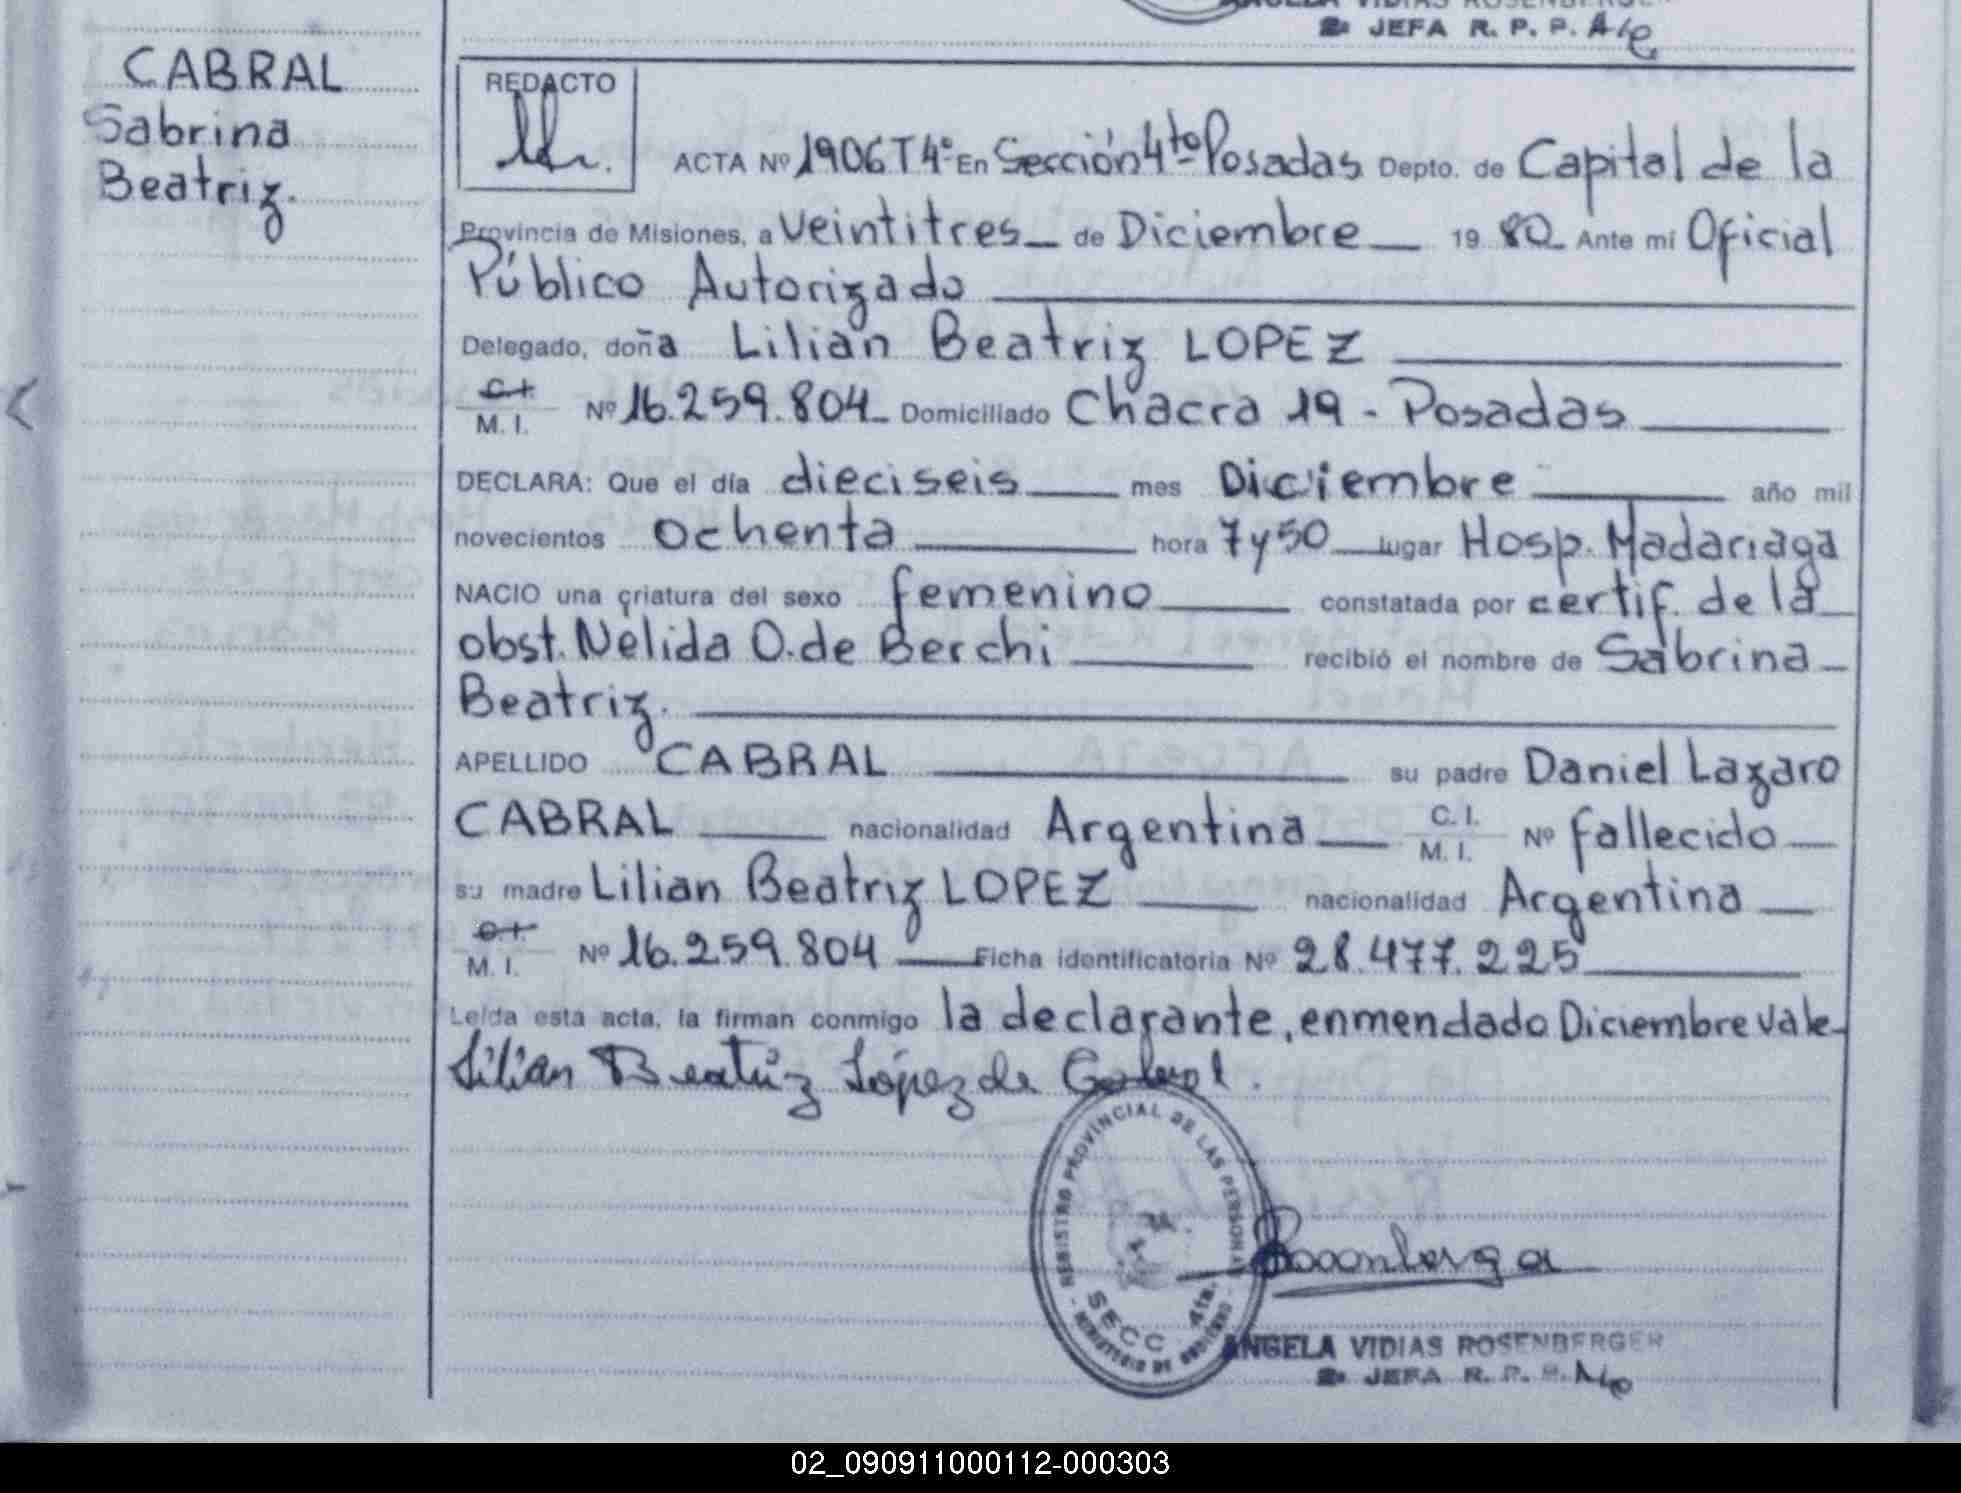 ANGELA VIDIAS ROSENBERGER
2a JEFA R. P. P. Alc
CABRAL
Sabrina
Beatriz.
REDACTO
ACTA Nº 1906 T 4º En Sección 4to Posadas Depto. de Capital de la
Provincia de Misiones, a veintitres de Diciembre 19 80 Ante mi Oficial
Público Autorizado
Delegado, doña Lilian Beatriz LOPEZ
C.I.
M. I. Nº 16.259.804 Domiciliado Chacra 19 - Posadas
DECLARA: Que el día dieciseis mes Diciembre año mil
novecientos ochenta hora 7 y 50 lugar Hosp. Madariaga
NACIO una criatura del sexo femenino constatada por certif. de la
obst. Nélida O. de Berchi recibió el nombre de Sabrina
Beatriz.
APELLIDO CABRAL su padre Daniel Lazaro
CABRAL nacionalidad Argentina C. I. M. I. Nº fallecido
su madre Lilian Beatriz LOPEZ nacionalidad Argentina
C.I.
M. I. Nº 16.259.804 Ficha identificatoria Nº 28.477.225
Leída esta acta, la firman conmigo la declarante, enmendado Diciembre vale
Lilian Beatriz López de Cabral.
REGISTRO PROVINCIAL DE LAS PERSONAS
SECC. 4ta.
MINISTERIO DE GOBIERNO
ANGELA VIDIAS ROSENBERGER
2a JEFA R. P. P.
02_090911000112-000303